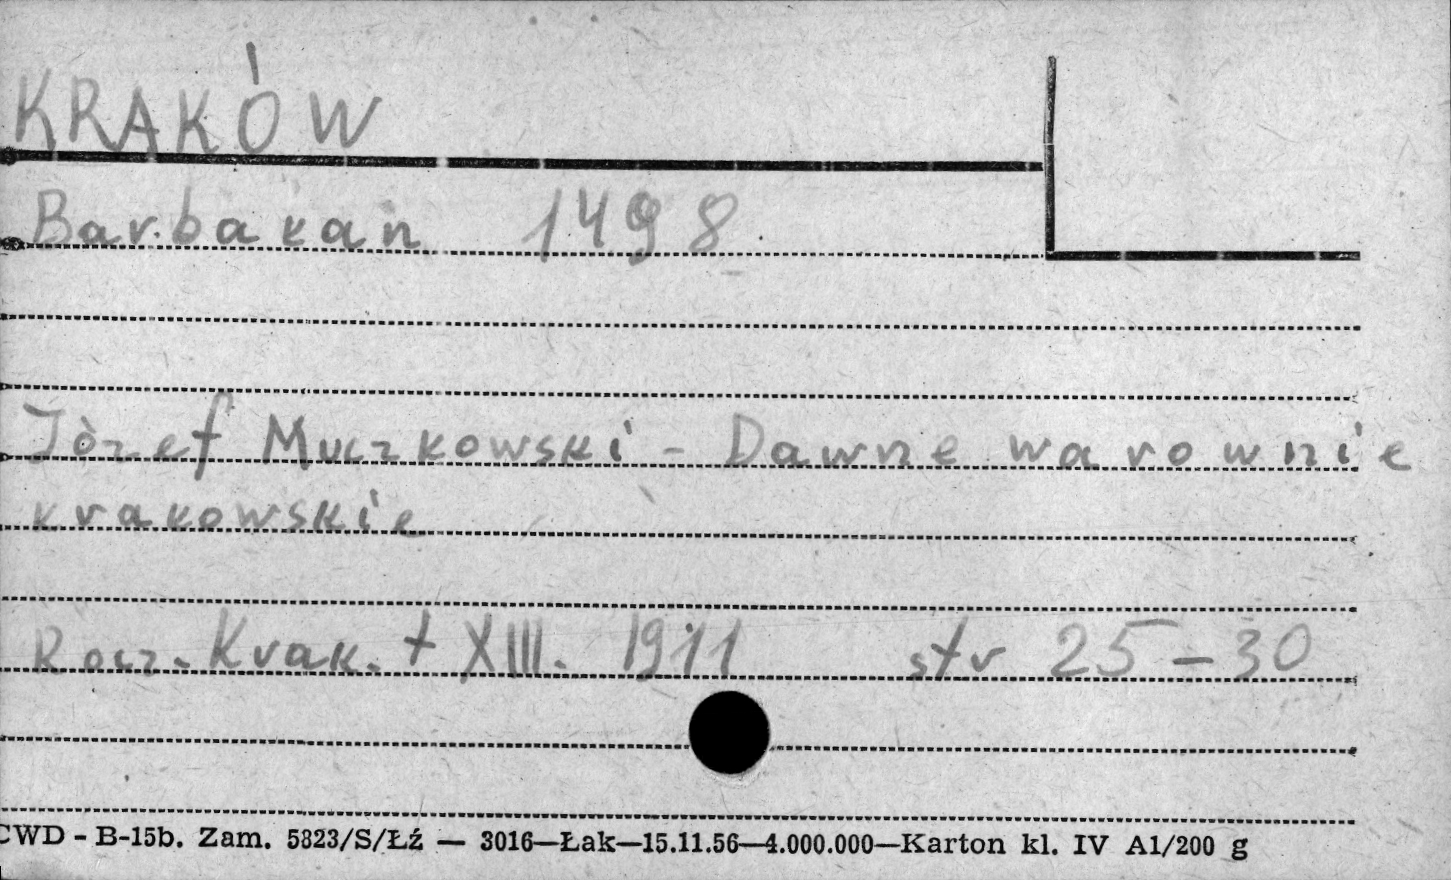 KRAKÓW
Barbakan 1498
Józef Muczkowski - Dawne warownie
krakowskie
Rocz. Krak. t XIII. 1911 str 25-30
CWD - B-15b. Zam. 5823/S/Łź — 3016—Łak—15.11.56—4.000.000—Karton kl. IV A1/200 g